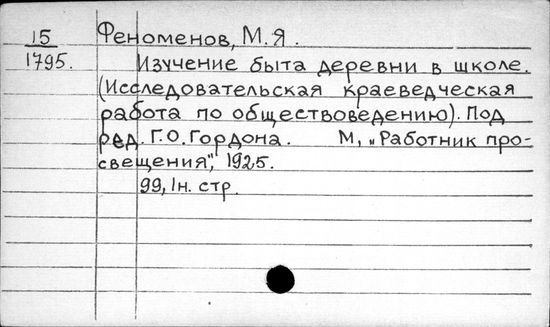 15
1795.
Феноменов, М.Я.
Изучение быта деревни в школе.
(Исследовательская краеведческая
работа по обществоведению). Под
ред. Г.О. Гордона. М, „Работник про-
свещения", 1925.
99, 1н. стр.